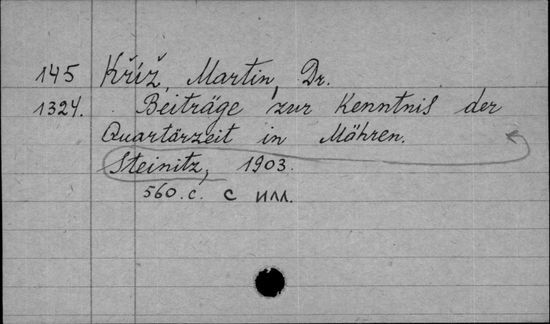 145 Kříž, Martin, Dr.
1324. Beiträge zur Kenntnis der
Quartärzeit in Möhren.
Steinitz, 1903.
560.c. с илл.